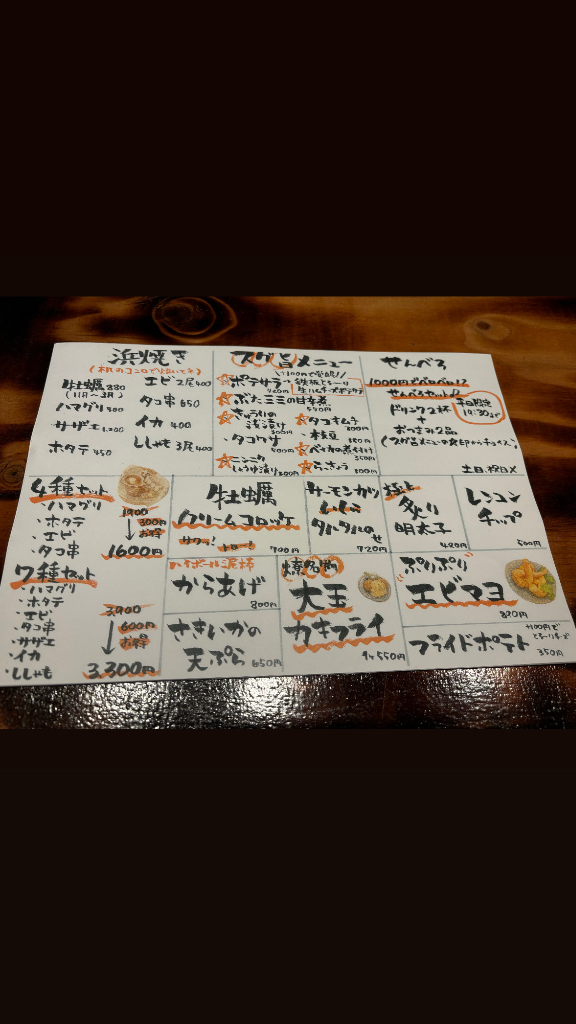 浜焼き
牡蠣 880
(11月〜3月)
ハマグリ 500
サザエ 1,200
ホタテ 450
エビ 2尾 400
タコ串 650
イカ 400
ししゃも 3尾 400
スグ旨メニュー
ポテサラ
ぶた三玉の甘辛煮
きゅうりの
浅漬け
タコワサ
ニンニク
しょうゆ漬け 300円
タコキムチ
枝豆
350円
らっきょう
せんべろ
1000円でベロベロ!?
せんべろセット
平日限定
19:30まで
ドリンク2杯
+
おつまみ2品
(スグ旨メニューの☆印からチョイス)
土日、祝日X
4種セット
・ハマグリ
・ホタテ
・エビ
・タコ串
1900
300円
お得
1600円
7種セット
・ハマグリ
・ホタテ
・エビ
・タコ串
・サザエ
・イカ
・ししゃも
3,900
600円
お得
3,300円
牡蠣
クリームコロッケ
サクッ! トロ〜!
700円
サーモンカツ
タルタルのせ
720円
極上
炙り
明太子
480円
レンコン
チップ
500円
ハイボール泥棒
からあげ
800円
さきいかの
天ぷら 650円
大玉
カキフライ
1ヶ 550円
ぷりぷり
エビマヨ
880円
フライドポテト
+100円で
350円